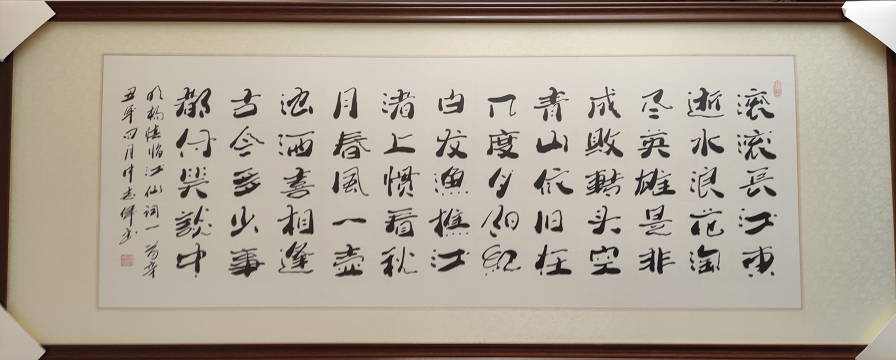 滚滚長江東
逝水浪花淘
尽英雄是非
成敗轉头空
青山依旧在
几度夕陽紅
白发漁樵江
渚上慣看秋
月春風一壺
浊酒喜相逢
古今多少事
都付笑談中
明楊慎临江仙词一首辛
丑年四月志偉书